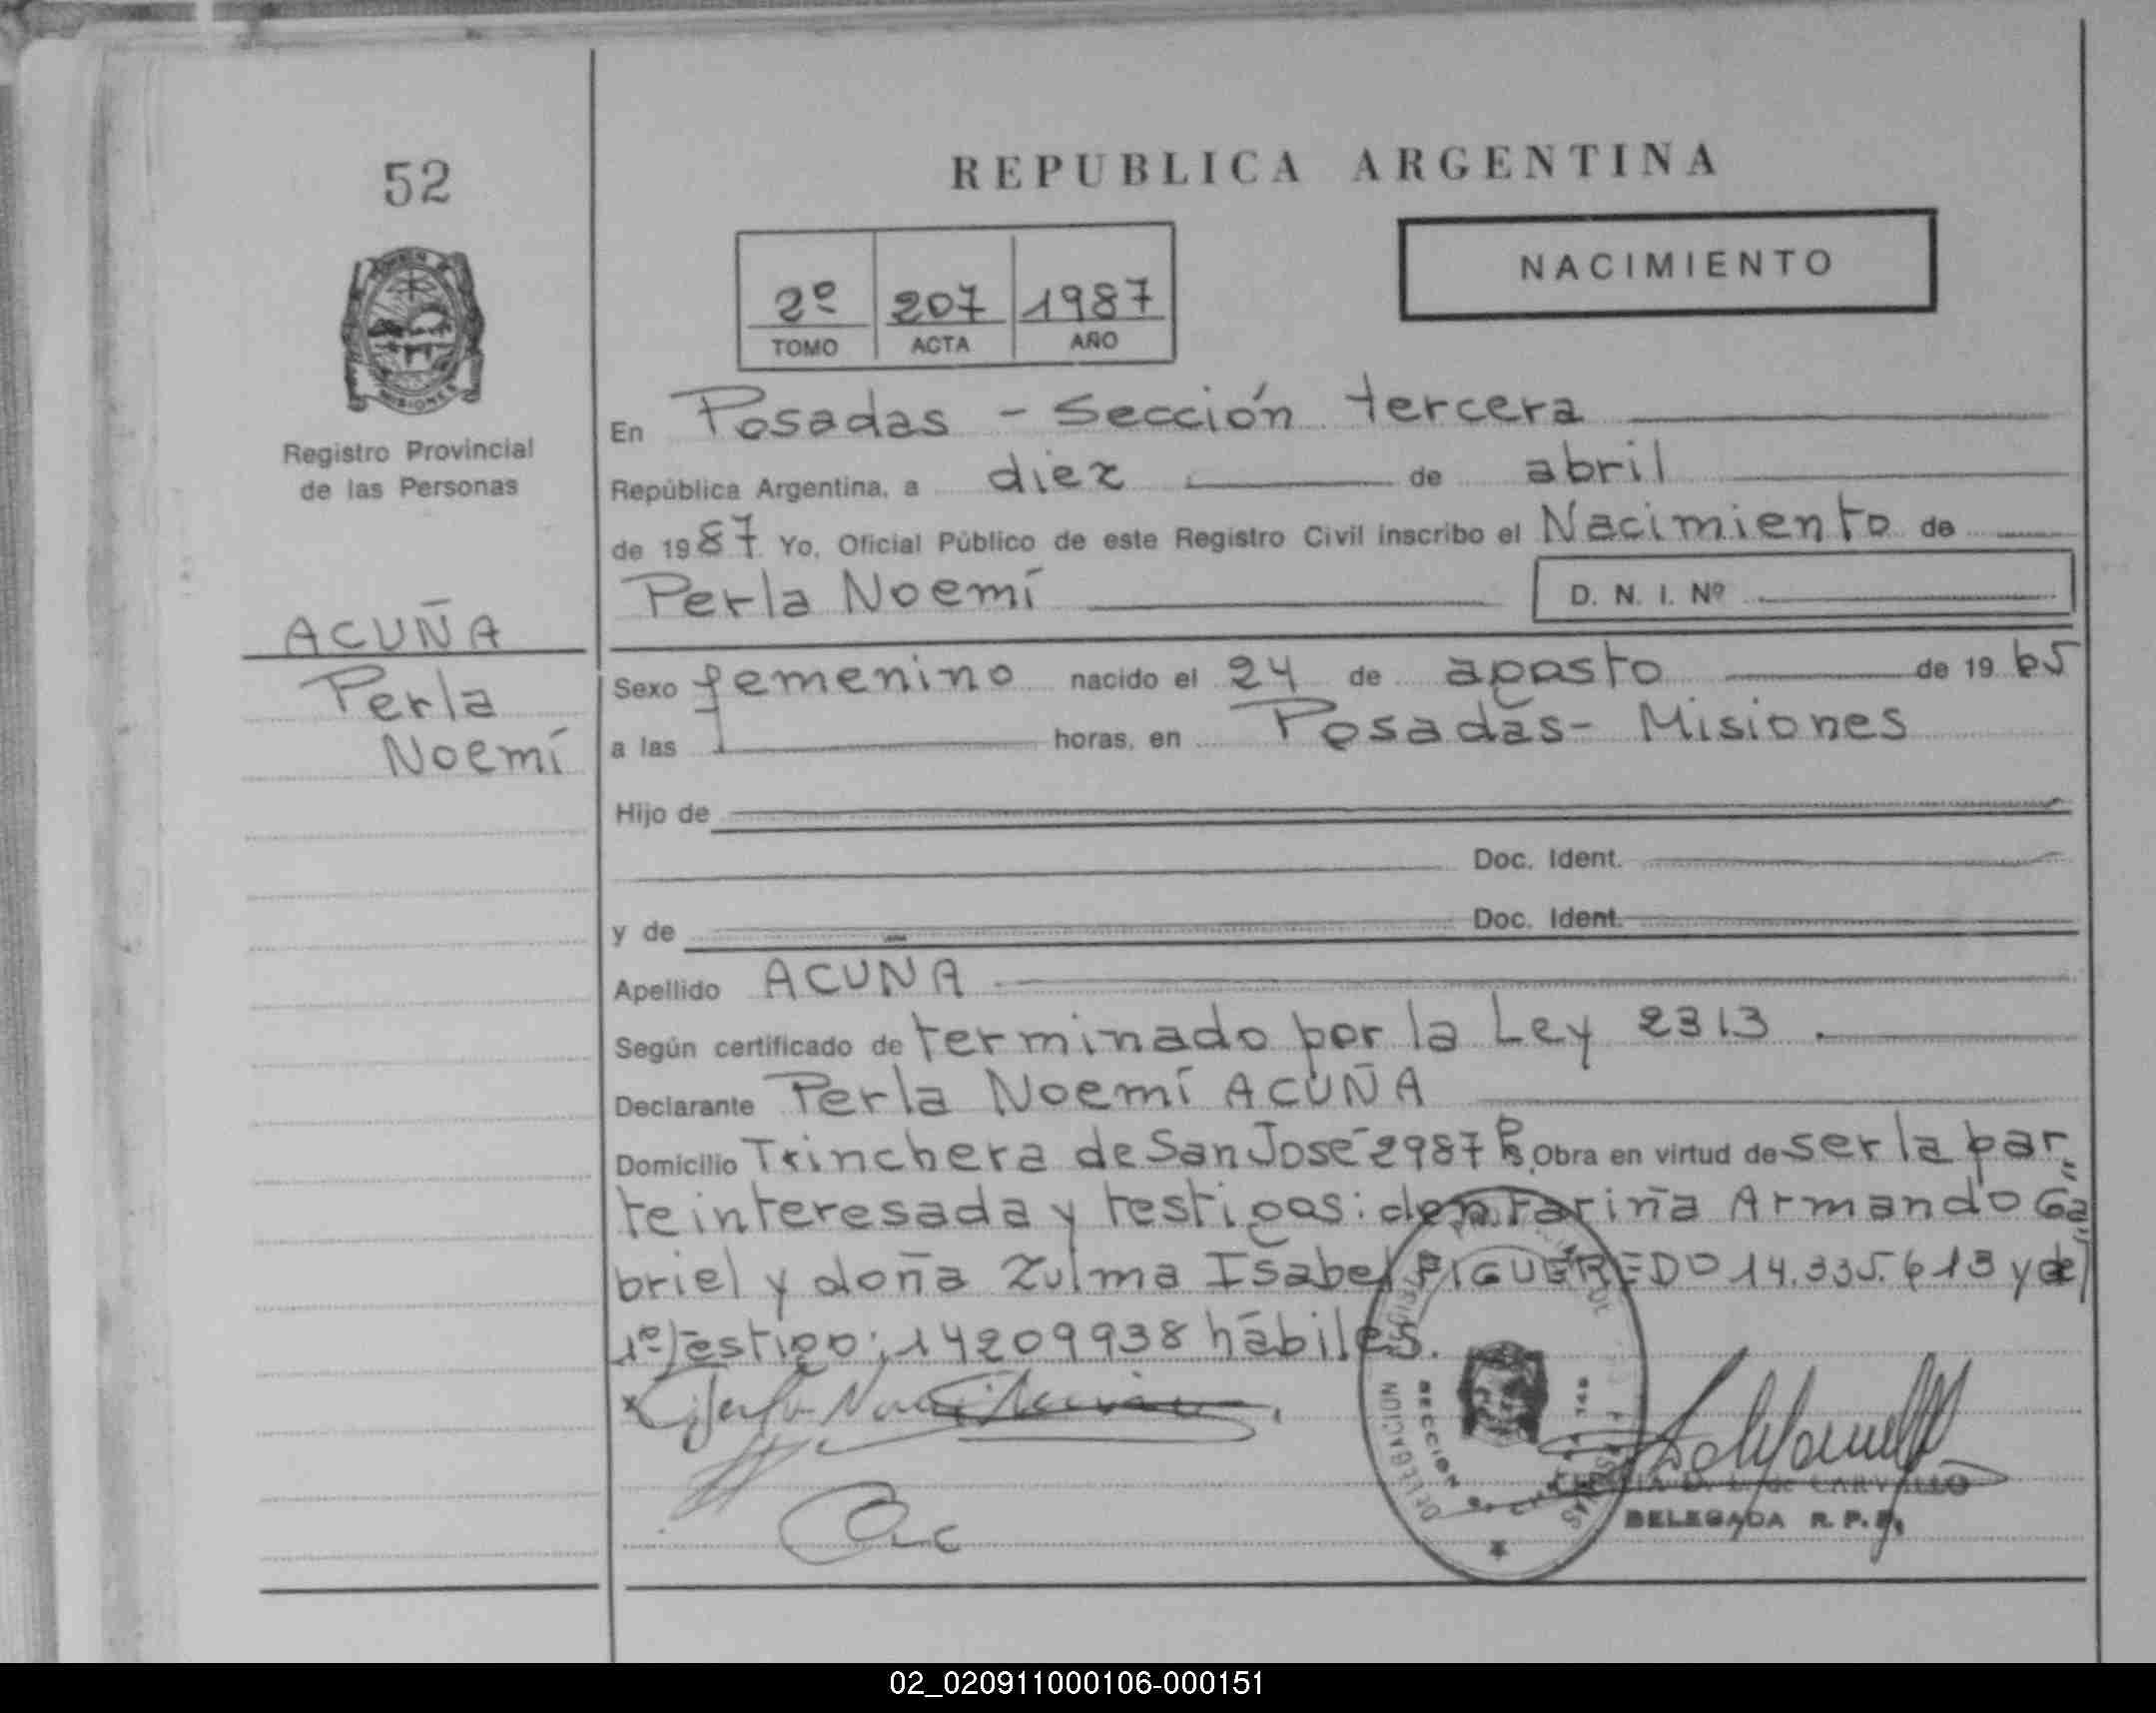 52
REPUBLICA ARGENTINA
NACIMIENTO
2º 207 1987
TOMO ACTA AÑO
Registro Provincial
de las Personas
ACUÑA
Perla
Noemí
En Posadas - Sección tercera
República Argentina, a diez de abril
de 1987 Yo, Oficial Público de este Registro Civil inscribo el Nacimiento de
Perla Noemí D. N. I. Nº
Sexo femenino nacido el 24 de agosto de 1965
a las horas, en Posadas - Misiones
Hijo de
Doc. Ident.
y de Doc. Ident.
Apellido ACUÑA
Según certificado de terminado por la Ley 2313.
Declarante Perla Noemí ACUÑA
Domicilio Trinchera de San José 2987 Ps. Obra en virtud de ser la par=
te interesada y testigos: don Fariña Armando Ga
briel y doña Zulma Isabel FIGUEREDO 14.335.613 y del
1º testigo; 14209938 hábiles.
SECCION
DELEGACION
DE CARVALLO
DELEGADA R. P. P.
02_020911000106-000151